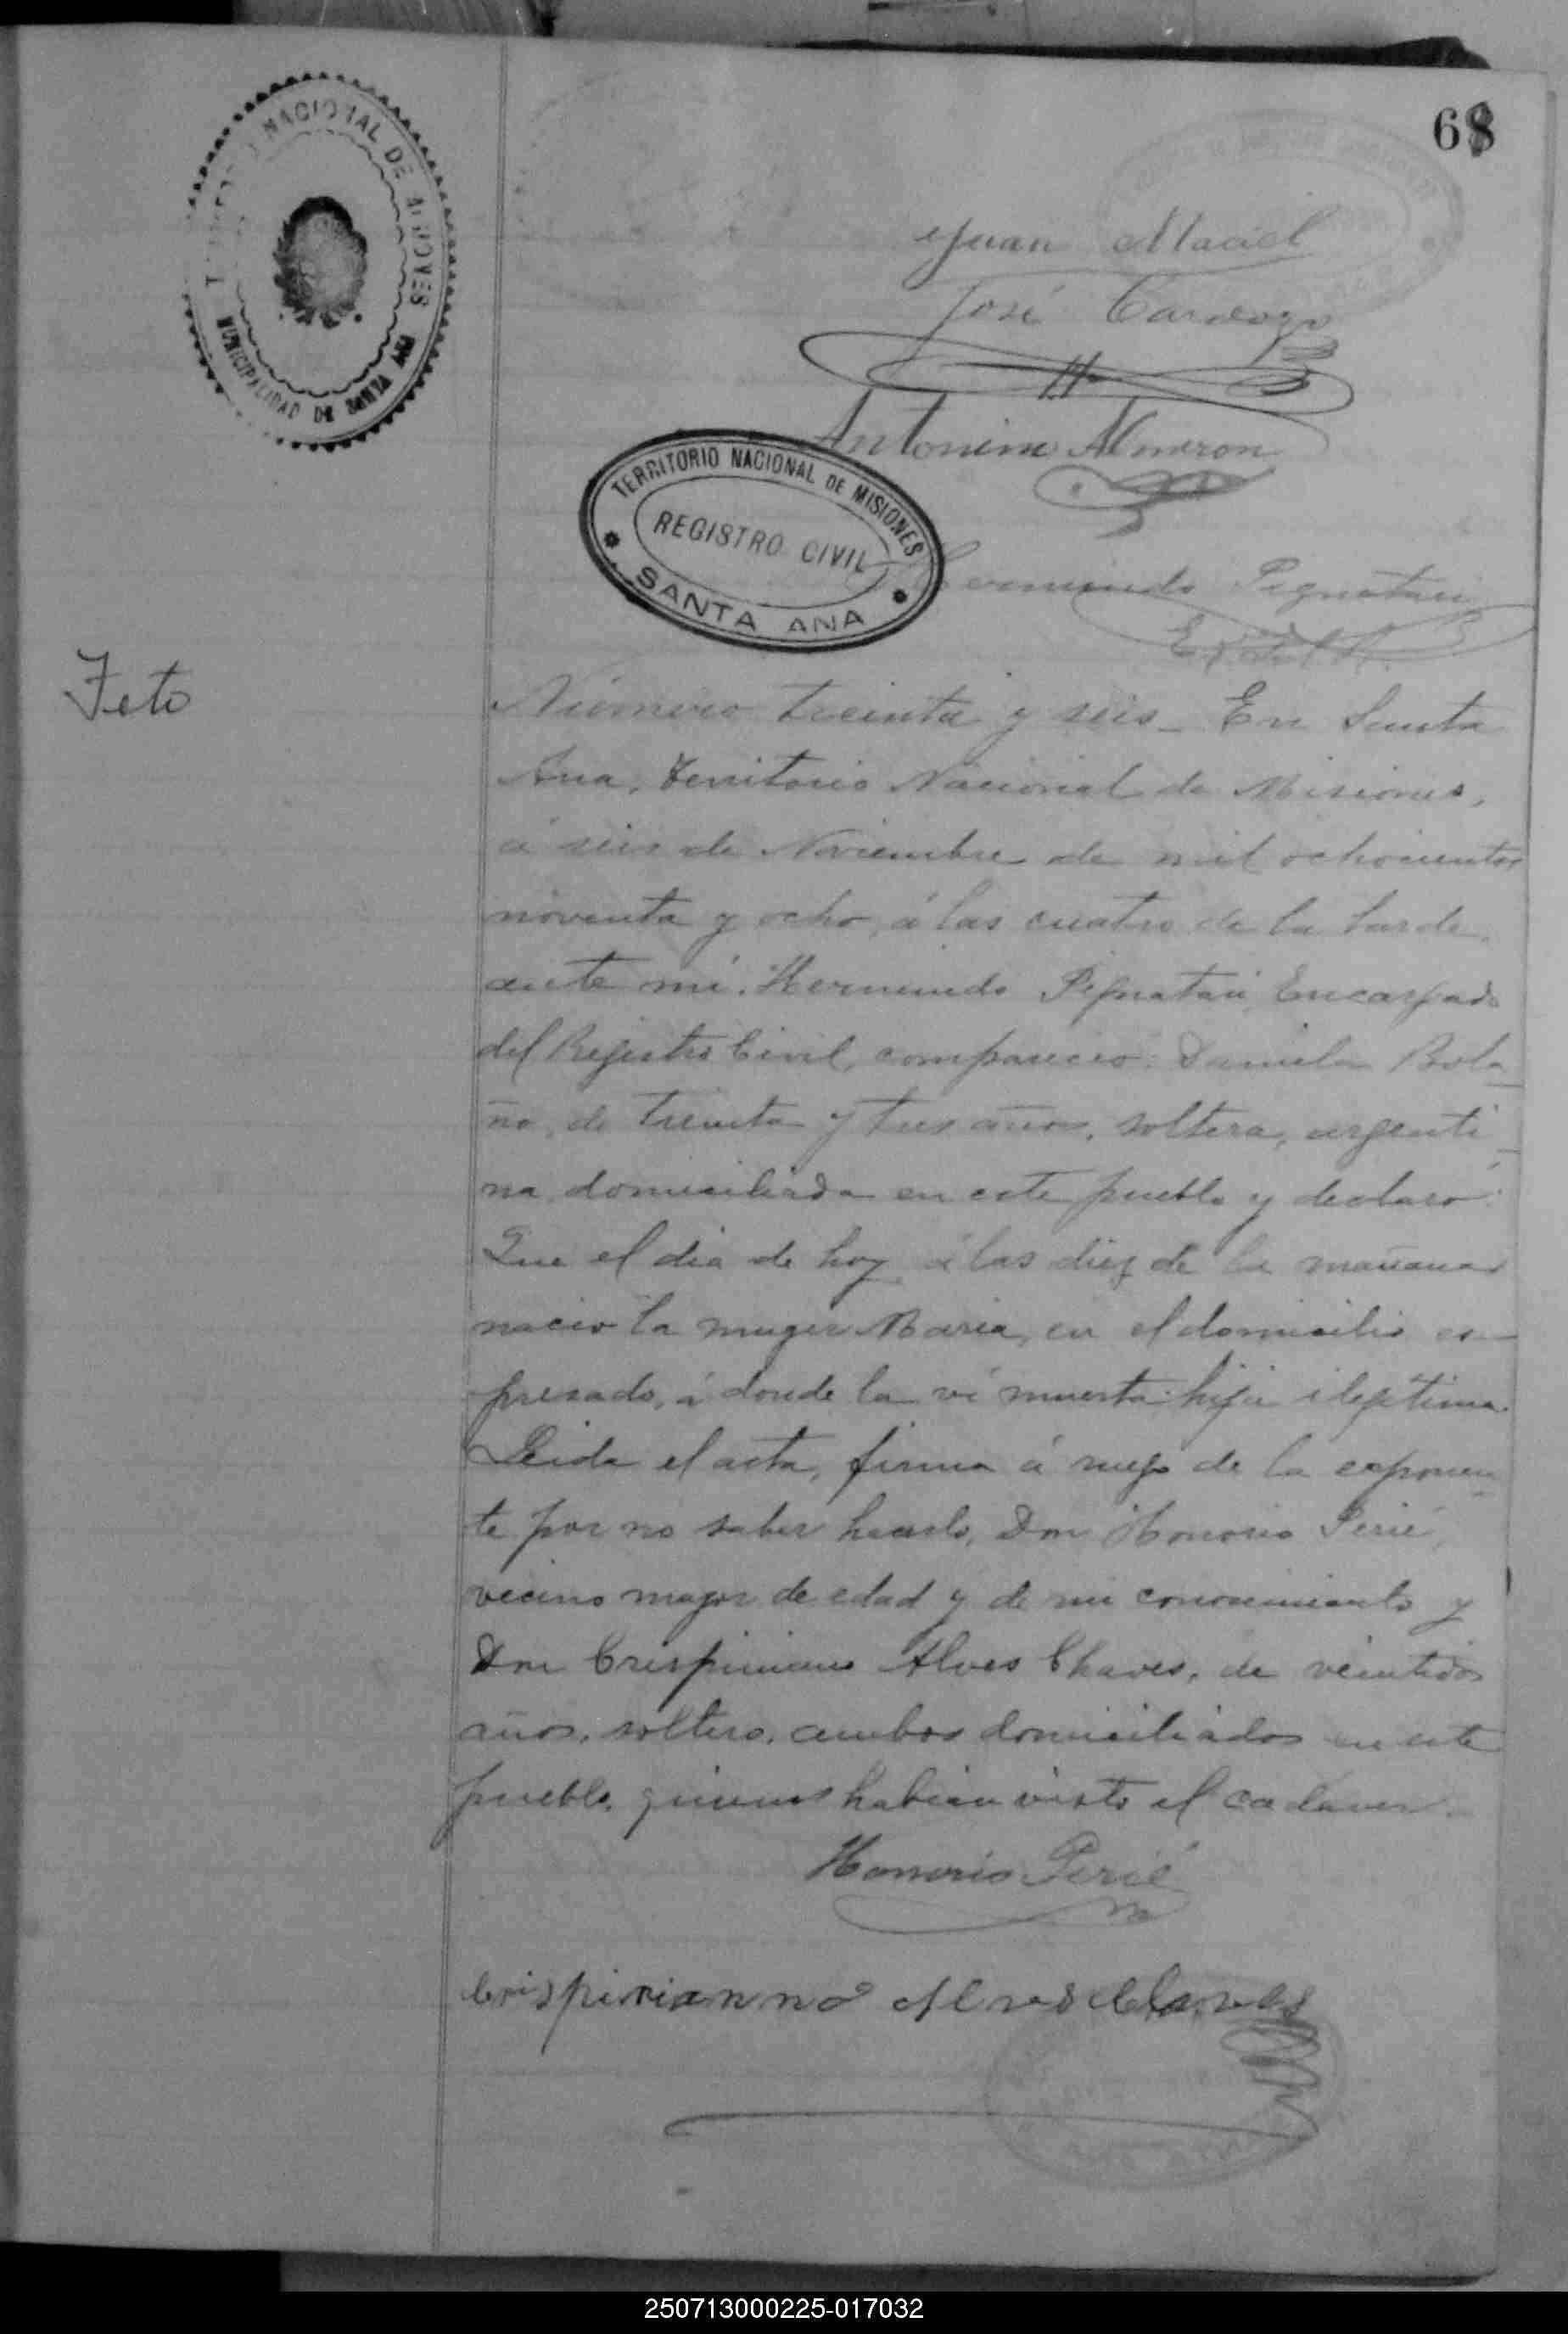 68
TERRITORIO NACIONAL DE MISIONES
MUNICIPALIDAD DE SANTA ANA
Juan Maciel
José Cardozo
Antonino Almiron
TERRITORIO NACIONAL DE MISIONES
REGISTRO CIVIL
SANTA ANA
Hermindo Pignatari
E. del R.
Feto
Número treinta y seis_ En Santa
Ana, territorio Nacional de Misiones,
á seis de Noviembre de mil ochocientos
noventa y ocho, á las cuatro de la tarde,
ante mi, Hermindo Pignatari, Encargado
del Rejistro Civil, compareció: Daniela Bola-
ño, de treinta y tres años, soltera, argenti-
na, domiciliada en este pueblo y declaró:
Que el dia de hoy á las diez de la mañana
nació la muger Maria, en el domicilio es-
presado, á donde la vi muerta: hija ilegítima.
Leida el acta, firma á ruego de la exponen-
te por no saber hacerlo, Don Honorio Perié,
vecino mayor de edad y de mi conocimiento y
Don Crispiniano Alves Chaves, de veintidos
años, soltero, ambos domiciliados en este
pueblo, quienes habian visto el cadaver.
Honorio Perié
Crispinianno Alves Chaves
250713000225-017032